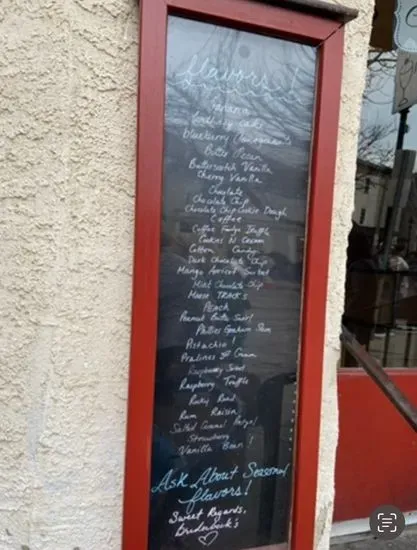 flavors!
banana
birthday cake
blueberry Pomegranate
Butter Pecan
Butterscotch Vanilla
Cherry Vanilla
Chocolate
Chocolate Chip
Chocolate Chip Cookie Dough
Coffee
Coffee Fudge Truffle
Cookies N Cream
Cotton Candy
Dark Chocolate Chip
Mango Apricot Sorbet
Mint Chocolate Chip
Moose TRACKS
Peach
Peanut Butter Swirl
Phillies Graham Slam
Pistachio!
Pralines N Cream
Raspberry Sorbet
Raspberry Truffle
Rocky Road
Rum Raisin
Salted Caramel
Strawberry
Vanilla Bean!
Ask About Seasonal
flavors!
Sweet Regards,